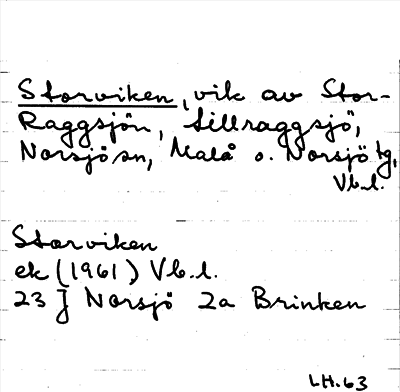 Storviken, vik av Stor-
Raggsjön, Lillraggsjö,
Norsjö sn, Malå o. Norsjö tg,
Vb.l.
Storviken
ek (1961) Vb.l.
23 J Norsjö 2a Brinken
LH.63